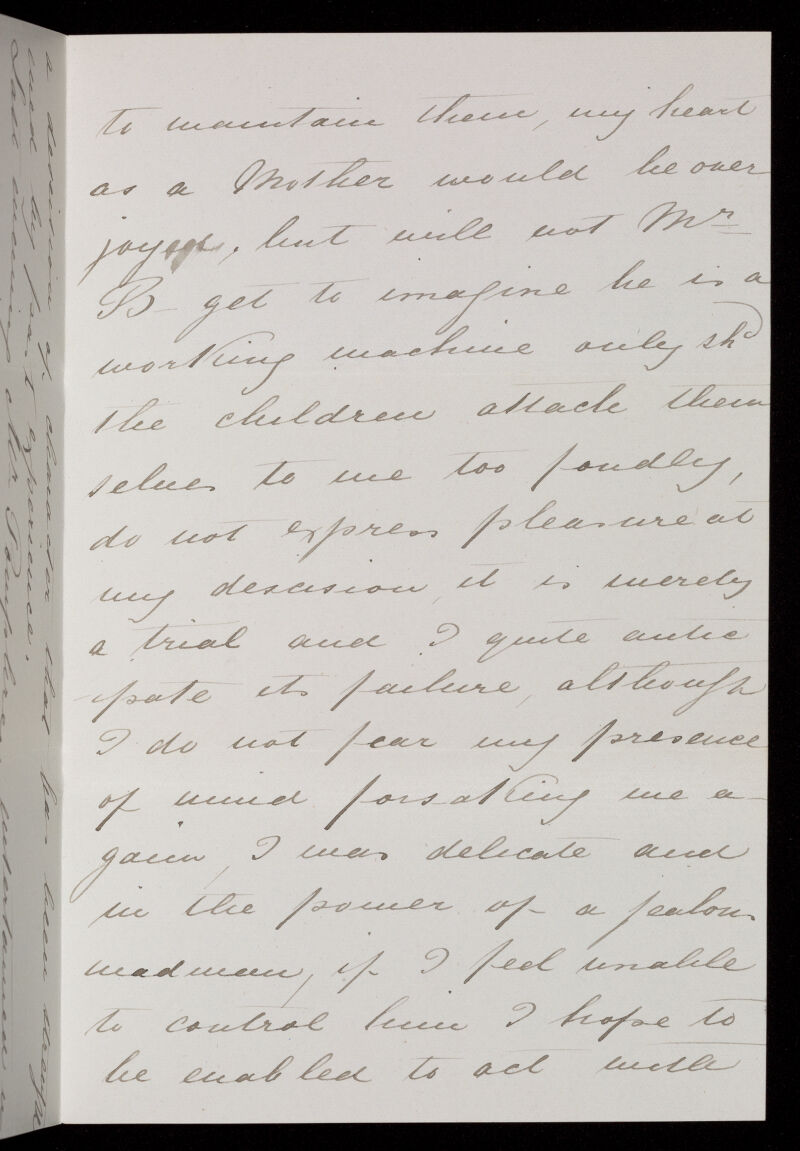 to maintain them, my heart
as a Mother would be over
joyed, but will not Mr
B- get to imagine he is a
working machine only shd
the children attach them
selves to me too fondly,
do not express pleasure at
my descision, it is merely
a trial and I quite antic
-pate its failure, although
I do not fear my presence
of mind forsaking me a-
gain, I was delicate and
in the power of a jealous
madman, if I feel unable
to control him I hope to
be enabled to act with
a desision of character that has been
and by past experience.